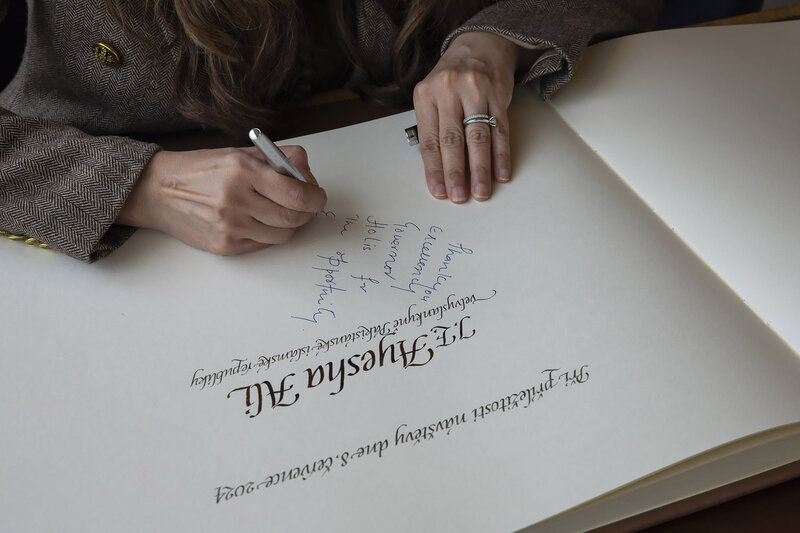 Při příležitosti návštěvy dne 8. července 2024
J.E. Ayesha Ali
velvyslankyně Pákistánské islámské republiky
Thank you
Excellency
Governor
Holis for
the opportunity.